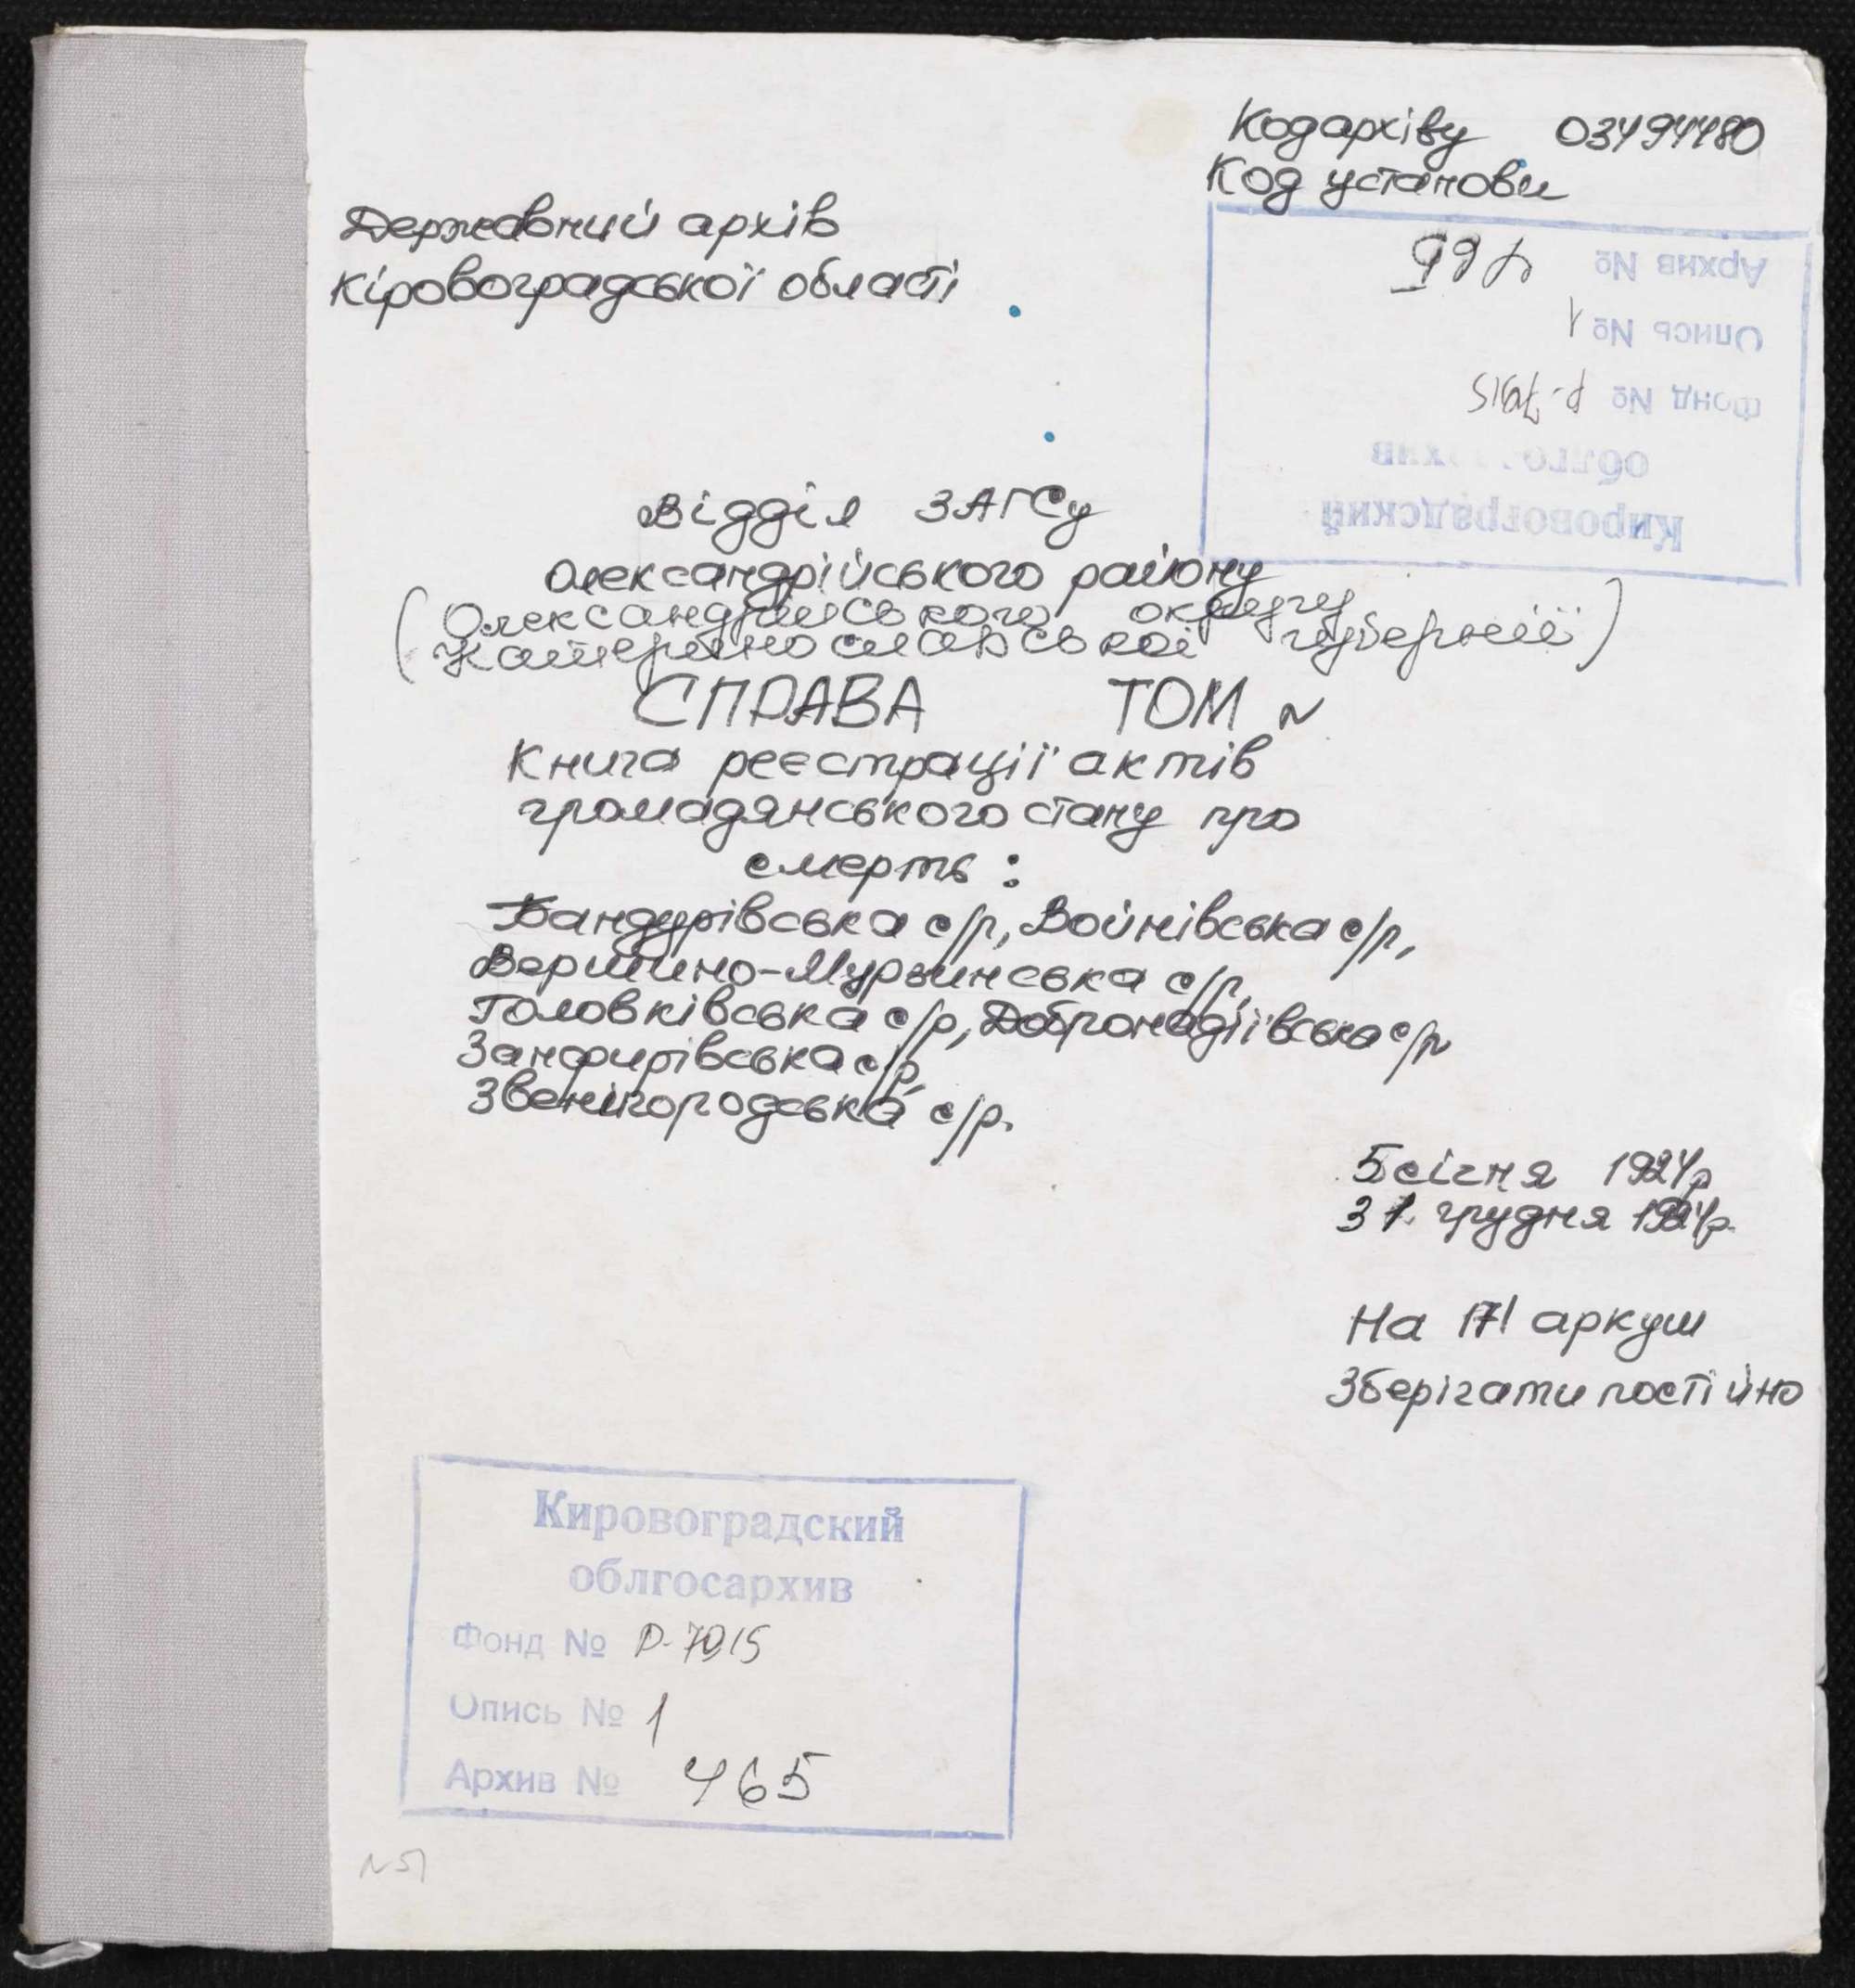 Код архіву 03494480
Код установи
Державний архів
Кіровоградської області
Архив № 465
Опись № 1
Фонд № Р-7915
облгосархив
Кировоградский
Відділ ЗАГСу
Олександрійського району
(Олександрійського округу
Катеринославської губернії)
СПРАВА ТОМ №
Книга реєстрації актів
громадянського стану про
смерть:
Бандурівська с/р, Войнівська с/р,
Вершино-Мурзинська с/р,
Головківська с/р, Добронадіївська с/р
Занфирівська с/р,
Звенигородська с/р.
5 січня 1924р
31 грудня 1924р.
На 171 аркуш
Зберігати постійно
Кировоградский
облгосархив
Фонд № Р-7915
Опись № 1
Архив № 465